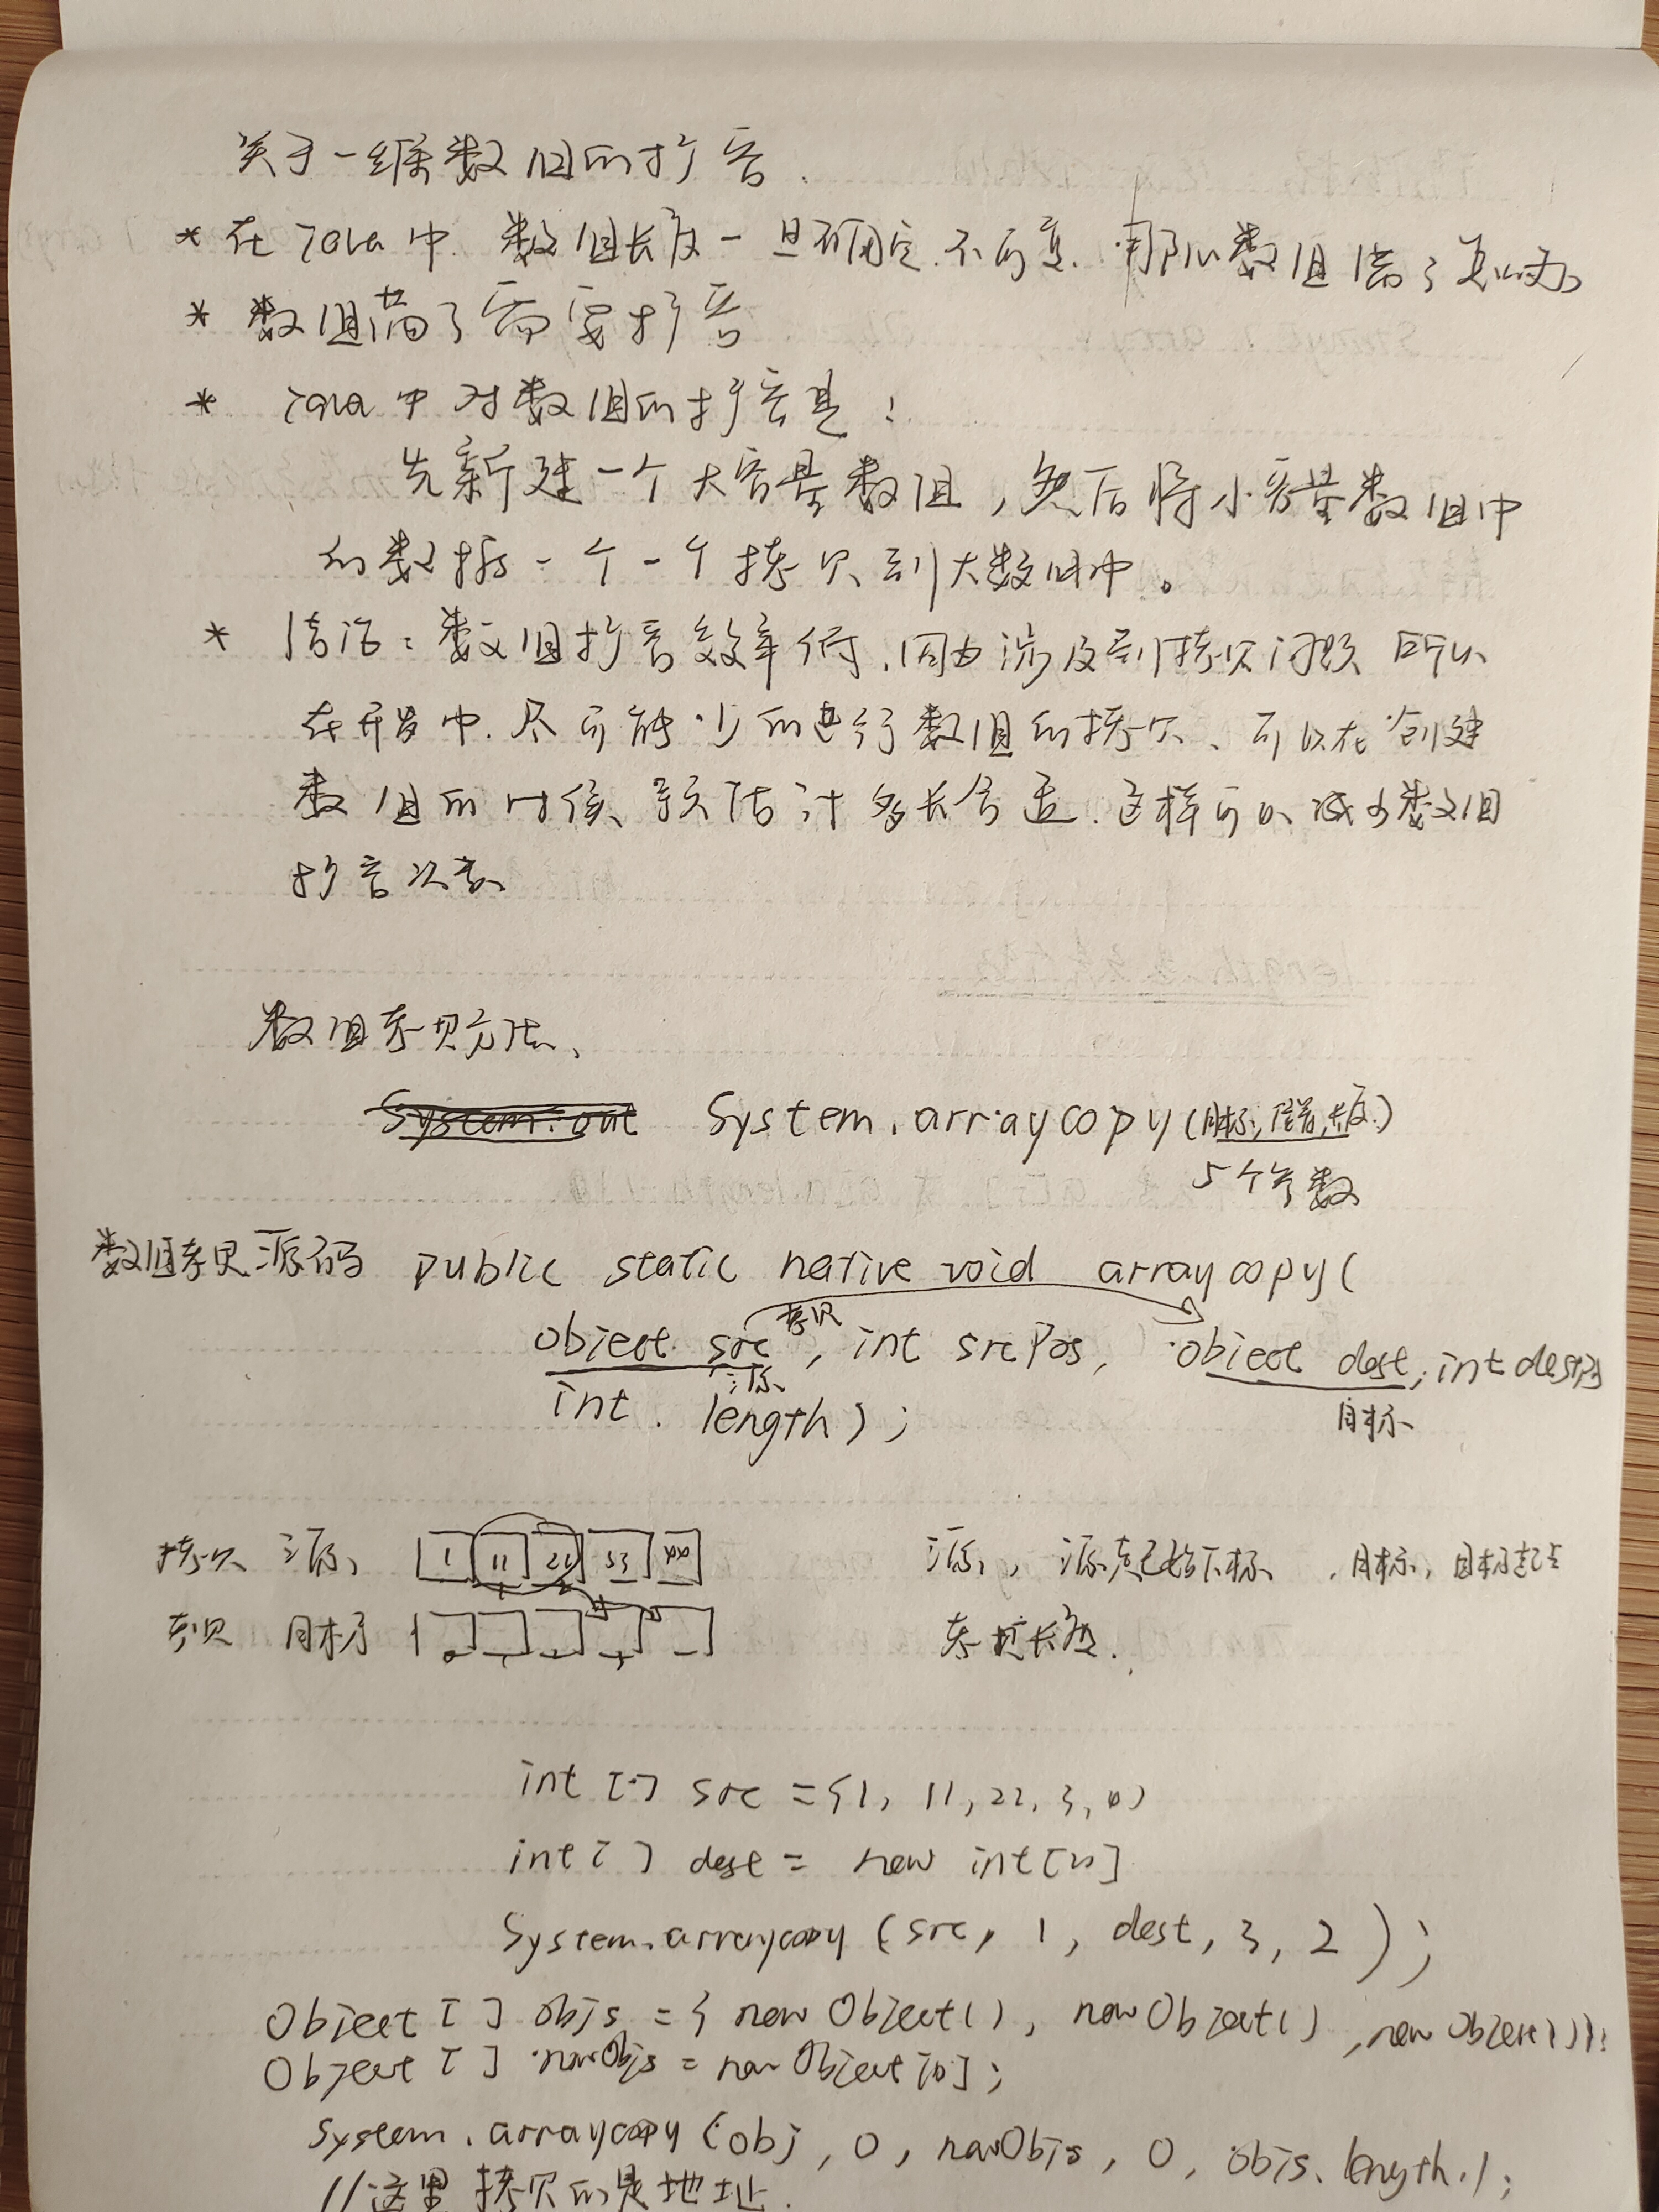 关于一维数组的扩容.
* 在Java中. 数组长度一旦确定.不可变. 那么数组满了怎么办
* 数组满了需要扩容
* Java中对数组的扩容是:
先新建一个大容量数组,然后将小容量数组中
的数据一个一个拷贝到大数组中。
* 结论:数组扩容效率低.因为涉及到拷贝问题 所以
在开发中.尽可能少的进行数组的拷贝、可以在创建
数组的时候、预估计多长合适.这样可以减少数组
扩容次数
数组拷贝方法、
System.out System.arraycopy(目标,源,长度.)
5个参数
数组拷贝源码 public static native void arraycopy(
拷贝
object src, int srcPos, object dest, int destPos
源
int. length);
目标
拷贝 源 1 11 22 33 44
源, 源起始下标, 目标, 目标起点
拷贝 目标
拷贝长度.
int [] src ={1, 11,22,3,4}
int[] dest = new int[20]
System.arraycopy (src, 1, dest, 3, 2);
Object [] objs ={ new Object(), new Object(), new Object()};
Object [] newObjs = new Object[10];
System.arraycopy (obj, 0, newObjs, 0, objs.length.);
//这里拷贝的是地址.